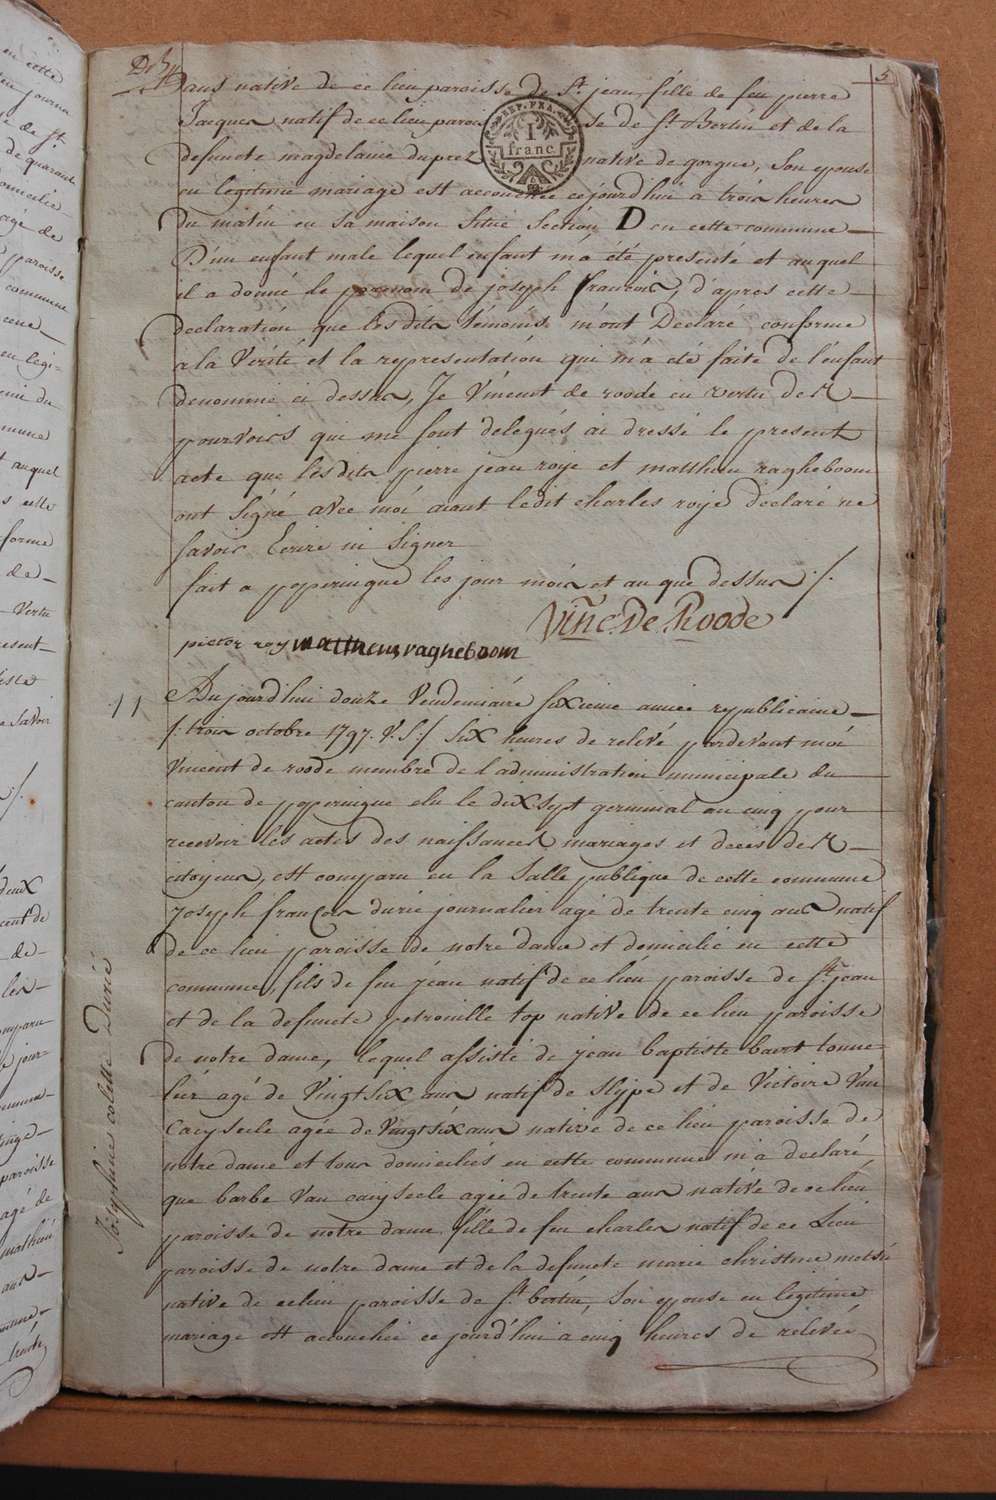 5
ans native de ce lieu paroisse de St. jean, fille de feu pierre
Jacques natif de ce lieu parois se de St. Bertin et de la
REP. FRA. 1 franc
defuncte magdelaine duprez native de gorgue, son epouse
en legitime mariage est accouchée cejourd'huí a troís heures
du matin en sa maison situé Sectión D en cette commune
D'un enfant male lequel enfant m'a été presenté et auquel
il a donné le prenom de joseph françois, d'après cette
declaratión que lesdits témoins m'ont Declaré conforme
a la Vérité et la representatión qui m'a été faite de l'enfant
denommé ci dessus, Je Vincent de roode en vertu des
pouvoirs qui me sont delegués ai dressé le present
acte que lesdits pierre jean roije et matthieu ragheboom
ont signé avec moi aiant ledit charles roije declaré ne
savoir Ecrire ni Signer
fait a poperingue les jour mois et an que dessus ./.
Vinc. De Roode
pieter roij mattheus ragheboom
11
Aujourd'hui douze Vendemiaire sixieme année republicaine
/: trois octobre 1797. V.S:/ six heures de relevé pardevant moi
Vincent de roode membre de l'administration municipale du
canton de poperingue elu le dixsept germinal an cinq pour
recevoir les actes des naissances mariages et deces des
citoyens, est comparu en la Salle publique de cette commune
Joseph françois durié journalier agé de trente cinq ans natif
de ce lieu paroisse de notre dame et domicilié en cette
commune, fils de feu jean natif de ce lieu paroisse de St. jean
et de la defuncte petronille top native de ce lieu paroisse
de notre dame, lequel assisté de jean baptiste bavot tonne-
lier agé de vingtsix ans natif de slype et de Victoire Van
Caeyseele agée de vingtsix ans native de ce lieu paroisse de
notre dame et tous domiciliés en cette commune m'a déclaré
que barbe Van caeyseele agée de trente ans native de ce lieu
paroisse de notre dame fille de feu charles natif de ce Lieu
paroisse de notre dame et de la defuncte marie christine
native de ce lieu paroisse de St. bertin, son epouse en legitime
mariage est accouchée ce jourd'hui a cinq heures de relevée
Josephine colette Durié